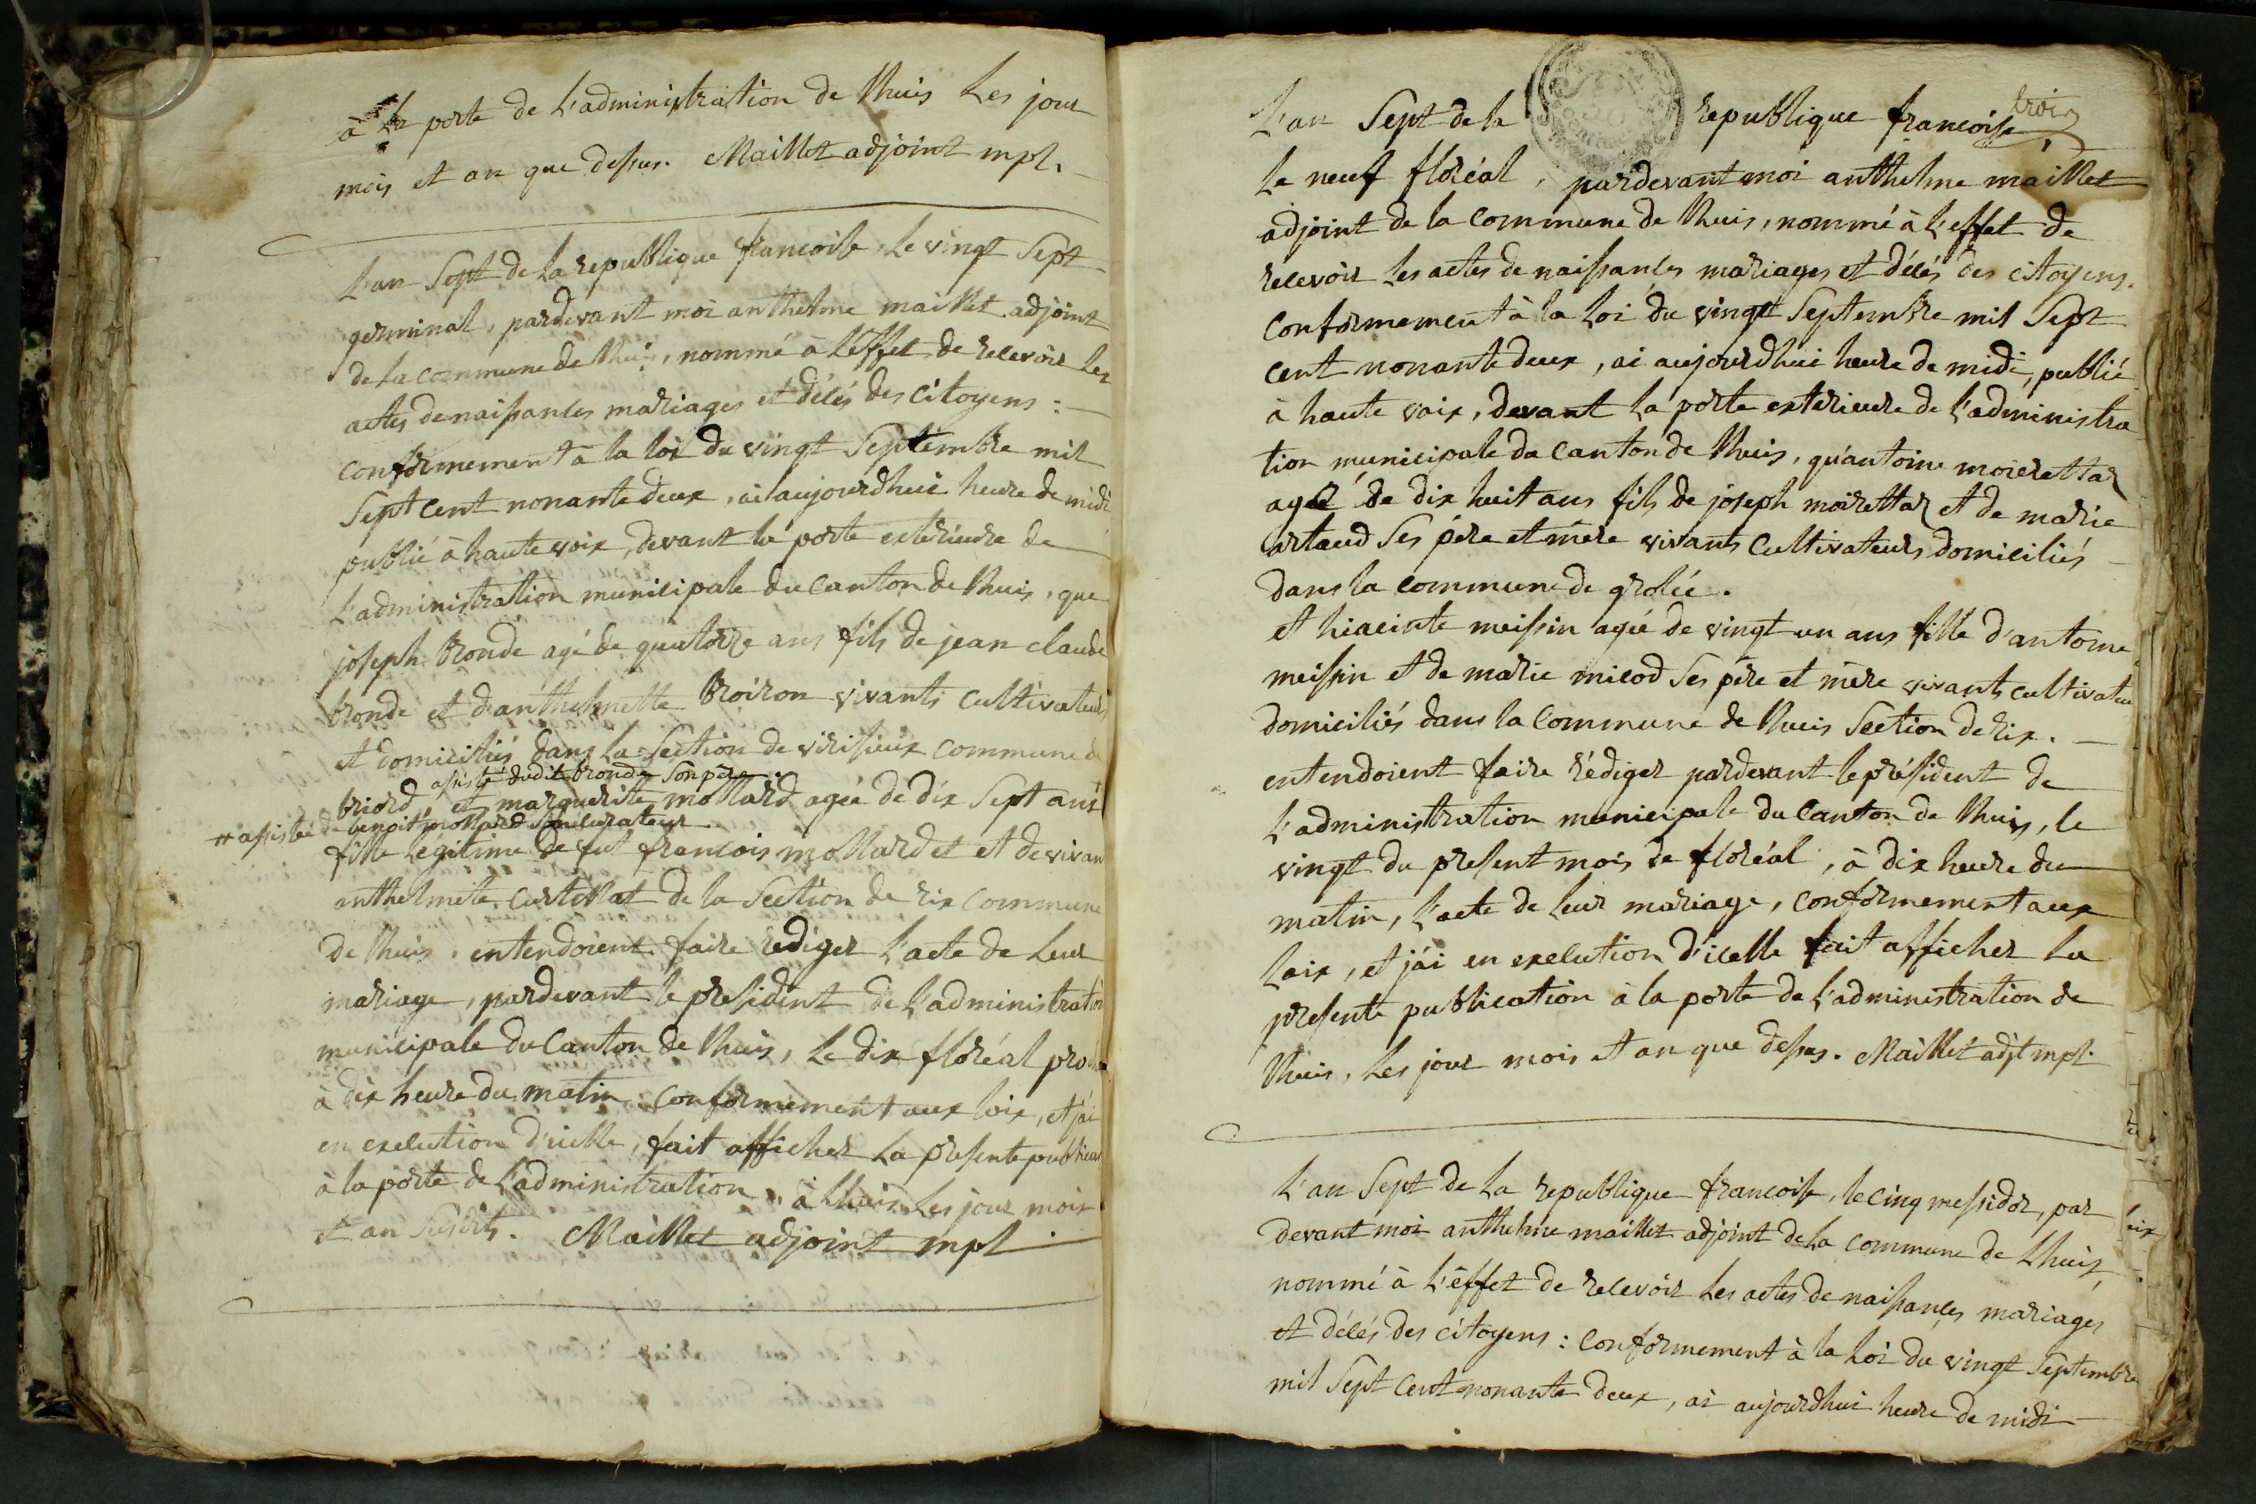 à la porte de L'administration de Lhuis Les jour
mois et an que dessus. Maillet adjoint mpl.
L'an Sept de La republique francoise, Le vingt Sept
germinal, pardevant moi anthelme maillet adjoint
de La commune de Lhuis, nommé à L'effet de recevoir Les
actes de naissances mariages et décés des citoyens :
conformement à la loi du vingt Septembre mil
Sept cent nonante deux, ai aujourdhui heure de midi
publié à haute voix, devant la porte extérieure de
L'administration municipale du canton de Lhuis, que
joseph tronde agé de quatorze ans fils de jean claude
tronde et d'anthelmette broiron vivants cultivateurs
et domiciliés dans La Section de virisieux commune de
assisté dudit tronde Son père
briord, et marguerite mollard agée de dix Sept ans
# assistée de benoit mollard Son curateur
fille légitime de fut francois mollard et et de vivant
anthelmete curtillat de la Section de rix commune
de Lhuis. entendoient faire rediger L'acte de Leur
mariage, pardevant le president de L'administration
municipale du Canton de Lhuis, Le dix floréal pro
à dix heure du matin conformement aux loix, et j'ai
en execution d'icelle, fait afficher La presente publica
à la porte de L'administration, à Lhuis Les jour mois
et an susdits. Maillet adjoint mpl.
trois
L'an Sept de la republique francoise
Le neuf floréal, pardevant moi anthelme maillet
adjoint de la commune de Lhuis, nommé à L'effet de
recevoir Les actes de naissances mariages et décés des citoyens.
conformement à la Loi du vingt Septembre mil Sept
cent nonante deux, ai aujourdhui heure de midi, publié
à haute voix, devant la porte exterieure de L'administra
tion municipale du canton de Lhuis, qu'antoine moirettaz
agé de dix huit ans fils de joseph moirettaz et de marie
artaud Ses père et mère vivants cultivateurs domiciliés
dans la commune de grolée.
et hiacinte meissin agée de vingt un ans fille d'antoine
meissin et de marie micod Ses père et mère vivants cultivateu
domiciliés dans la commune de Lhuis Section de rix.
entendoient faire rédiger pardevant le président de
L'administration municipale du Canton de Lhuis, le
vingt du present mois de floréal, à dix heure du
matin, L'acte de Leur mariage, conformement aux
Loix, et j'ai en execution d'icelle fait afficher La
presente publication à la porte de L'administration de
Lhuis, Les jour mois et an que dessus. Maillet adjt mpl.
L'an Sept de La republique francoise, le cinq messidor, par
devant moi anthelme maillet adjoint de La commune de Lhuis,
nommé à L'effet de recevoir Les actes de naissances mariages
et décés des citoyens : conformement à la Loi du vingt Septembre
mil Sept cent nonante deux, ai aujourdhui heure de midi